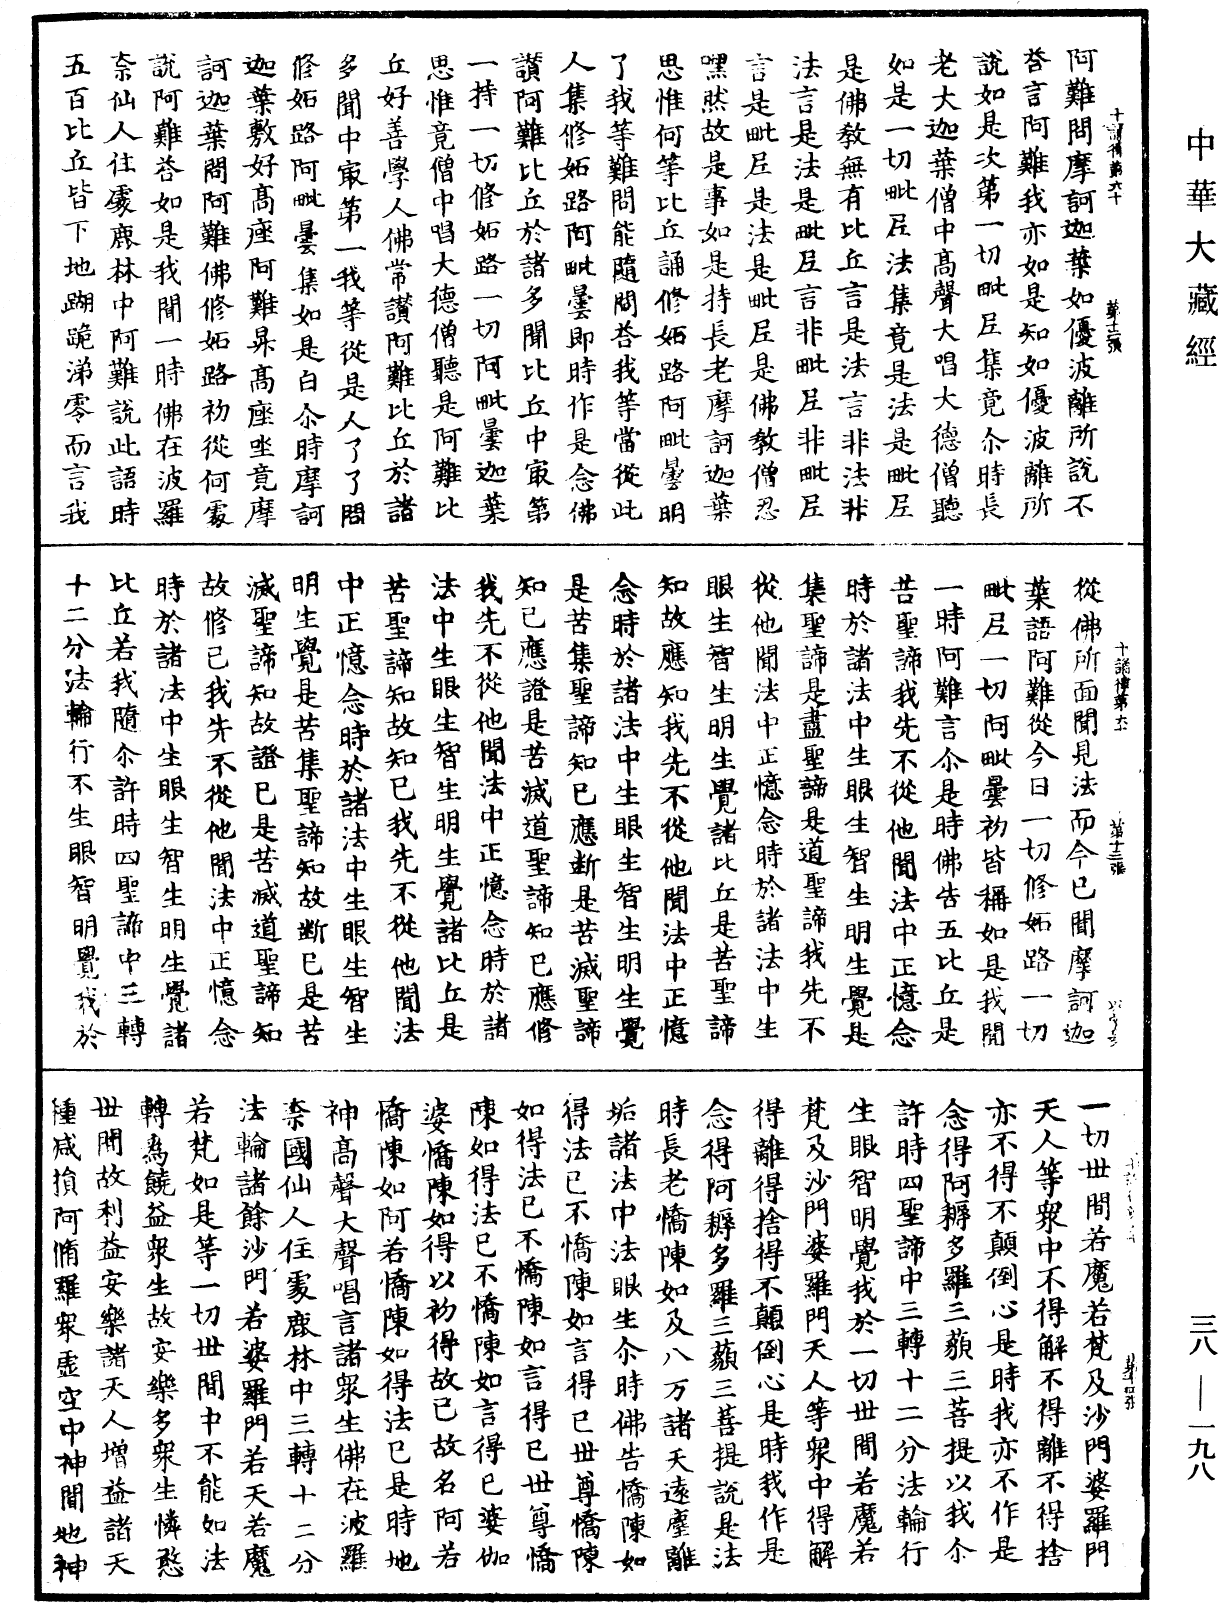 中華大藏經
十誦律第六十　第十二張
阿難問摩訶迦葉如優波離所說不
荅言阿難我亦如是知如優波離所
說如是次第一切毗尼集竟尒時長
老大迦葉僧中高聲大唱大德僧聽
如是一切毗尼法集竟是法是毗尼
是佛教無有比丘言是法言非法非
法言是法是毗尼言非毗尼非毗尼
言是毗尼是法是毗尼是佛教僧忍
嘿然故是事如是持長老摩訶迦葉
思惟何等比丘誦修妬路阿毗曇明
了我等難問能隨問荅我等當從此
人集修妬路阿毗曇即時作是念佛
讃阿難比丘於諸多聞比丘中㝡第
一持一切修妬路一切阿毗曇迦葉
思惟竟僧中唱大德僧聽是阿難比
丘好善學人佛常讃阿難比丘於諸
多聞中㝡第一我等從是人了了問
修妬路阿毗曇集如是白尒時摩訶
迦葉敷好高座阿難昇高座坐竟摩
訶迦葉問阿難佛修妬路初從何處
說阿難荅如是我聞一時佛在波羅
柰仙人住處鹿林中阿難說此語時
五百比丘皆下地蹦跪涕零而言我
十誦律第六十　第十三張
從佛所面聞見法而今已聞摩訶迦
葉語阿難從今日一切修妬路一切
毗尼一切阿毗曇初皆稱如是我聞
一時阿難言尒是時佛告五比丘是
苦聖諦我先不從他聞法中正憶念
時於諸法中生眼生智生明生覺是
集聖諦是盡聖諦是道聖諦我先不
從他聞法中正憶念時於諸法中生
眼生智生明生覺諸比丘是苦聖諦
知故應知我先不從他聞法中正憶
念時於諸法中生眼生智生明生覺
是苦集聖諦知已應斷是苦滅聖諦
知已應證是苦滅道聖諦知已應修
我先不從他聞法中正憶念時於諸
法中生眼生智生明生覺諸比丘是
苦聖諦知故知已我先不從他聞法
中正憶念時於諸法中生眼生智生
明生覺是苦集聖諦知故斷已是苦
滅聖諦知故證已是苦滅道聖諦知
故修已我先不從他聞法中正憶念
時於諸法中生眼生智生明生覺諸
比丘若我隨尒許時四聖諦中三轉
十二分法輪行不生眼智明覺我於
第十四張
一切世間若魔若梵及沙門婆羅門
天人等衆中不得解不得離不得捨
亦不得不顛倒心是時我亦不作是
念得阿耨多羅三藐三菩提以我尒
許時四聖諦中三轉十二分法輪行
生眼智明覺我於一切世間若魔若
梵及沙門婆羅門天人等衆中得解
得離得捨得不顛倒心是時我作是
念得阿耨多羅三藐三菩提說是法
時長老憍陳如及八万諸天遠塵離
垢諸法中法眼生尒時佛告憍陳如
得法已不憍陳如言得已世尊憍陳
如得法已不憍陳如言得已世尊憍
陳如得法已不憍陳如言得已婆伽
婆憍陳如得以初得故已故名阿若
憍陳如阿若憍陳如得法已是時地
神高聲大聲唱言諸衆生佛在波羅
柰國仙人住處鹿林中三轉十二分
法輪諸餘沙門若婆羅門若天若魔
若梵如是等一切世間中不能如法
轉為饒益衆生故安樂多衆生憐愍
世間故利益安樂諸天人增益諸天
種減損阿脩羅衆虛空中神聞地神
三八—一九八